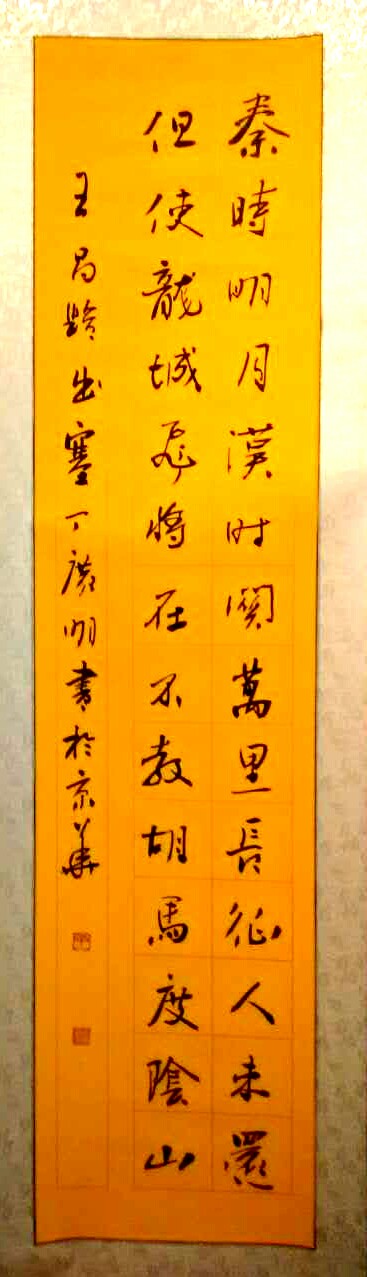 秦時明月漢时關萬里長征人未還
但使龍城飛將在不教胡馬度陰山
王昌齡出塞丁廣明書於京華